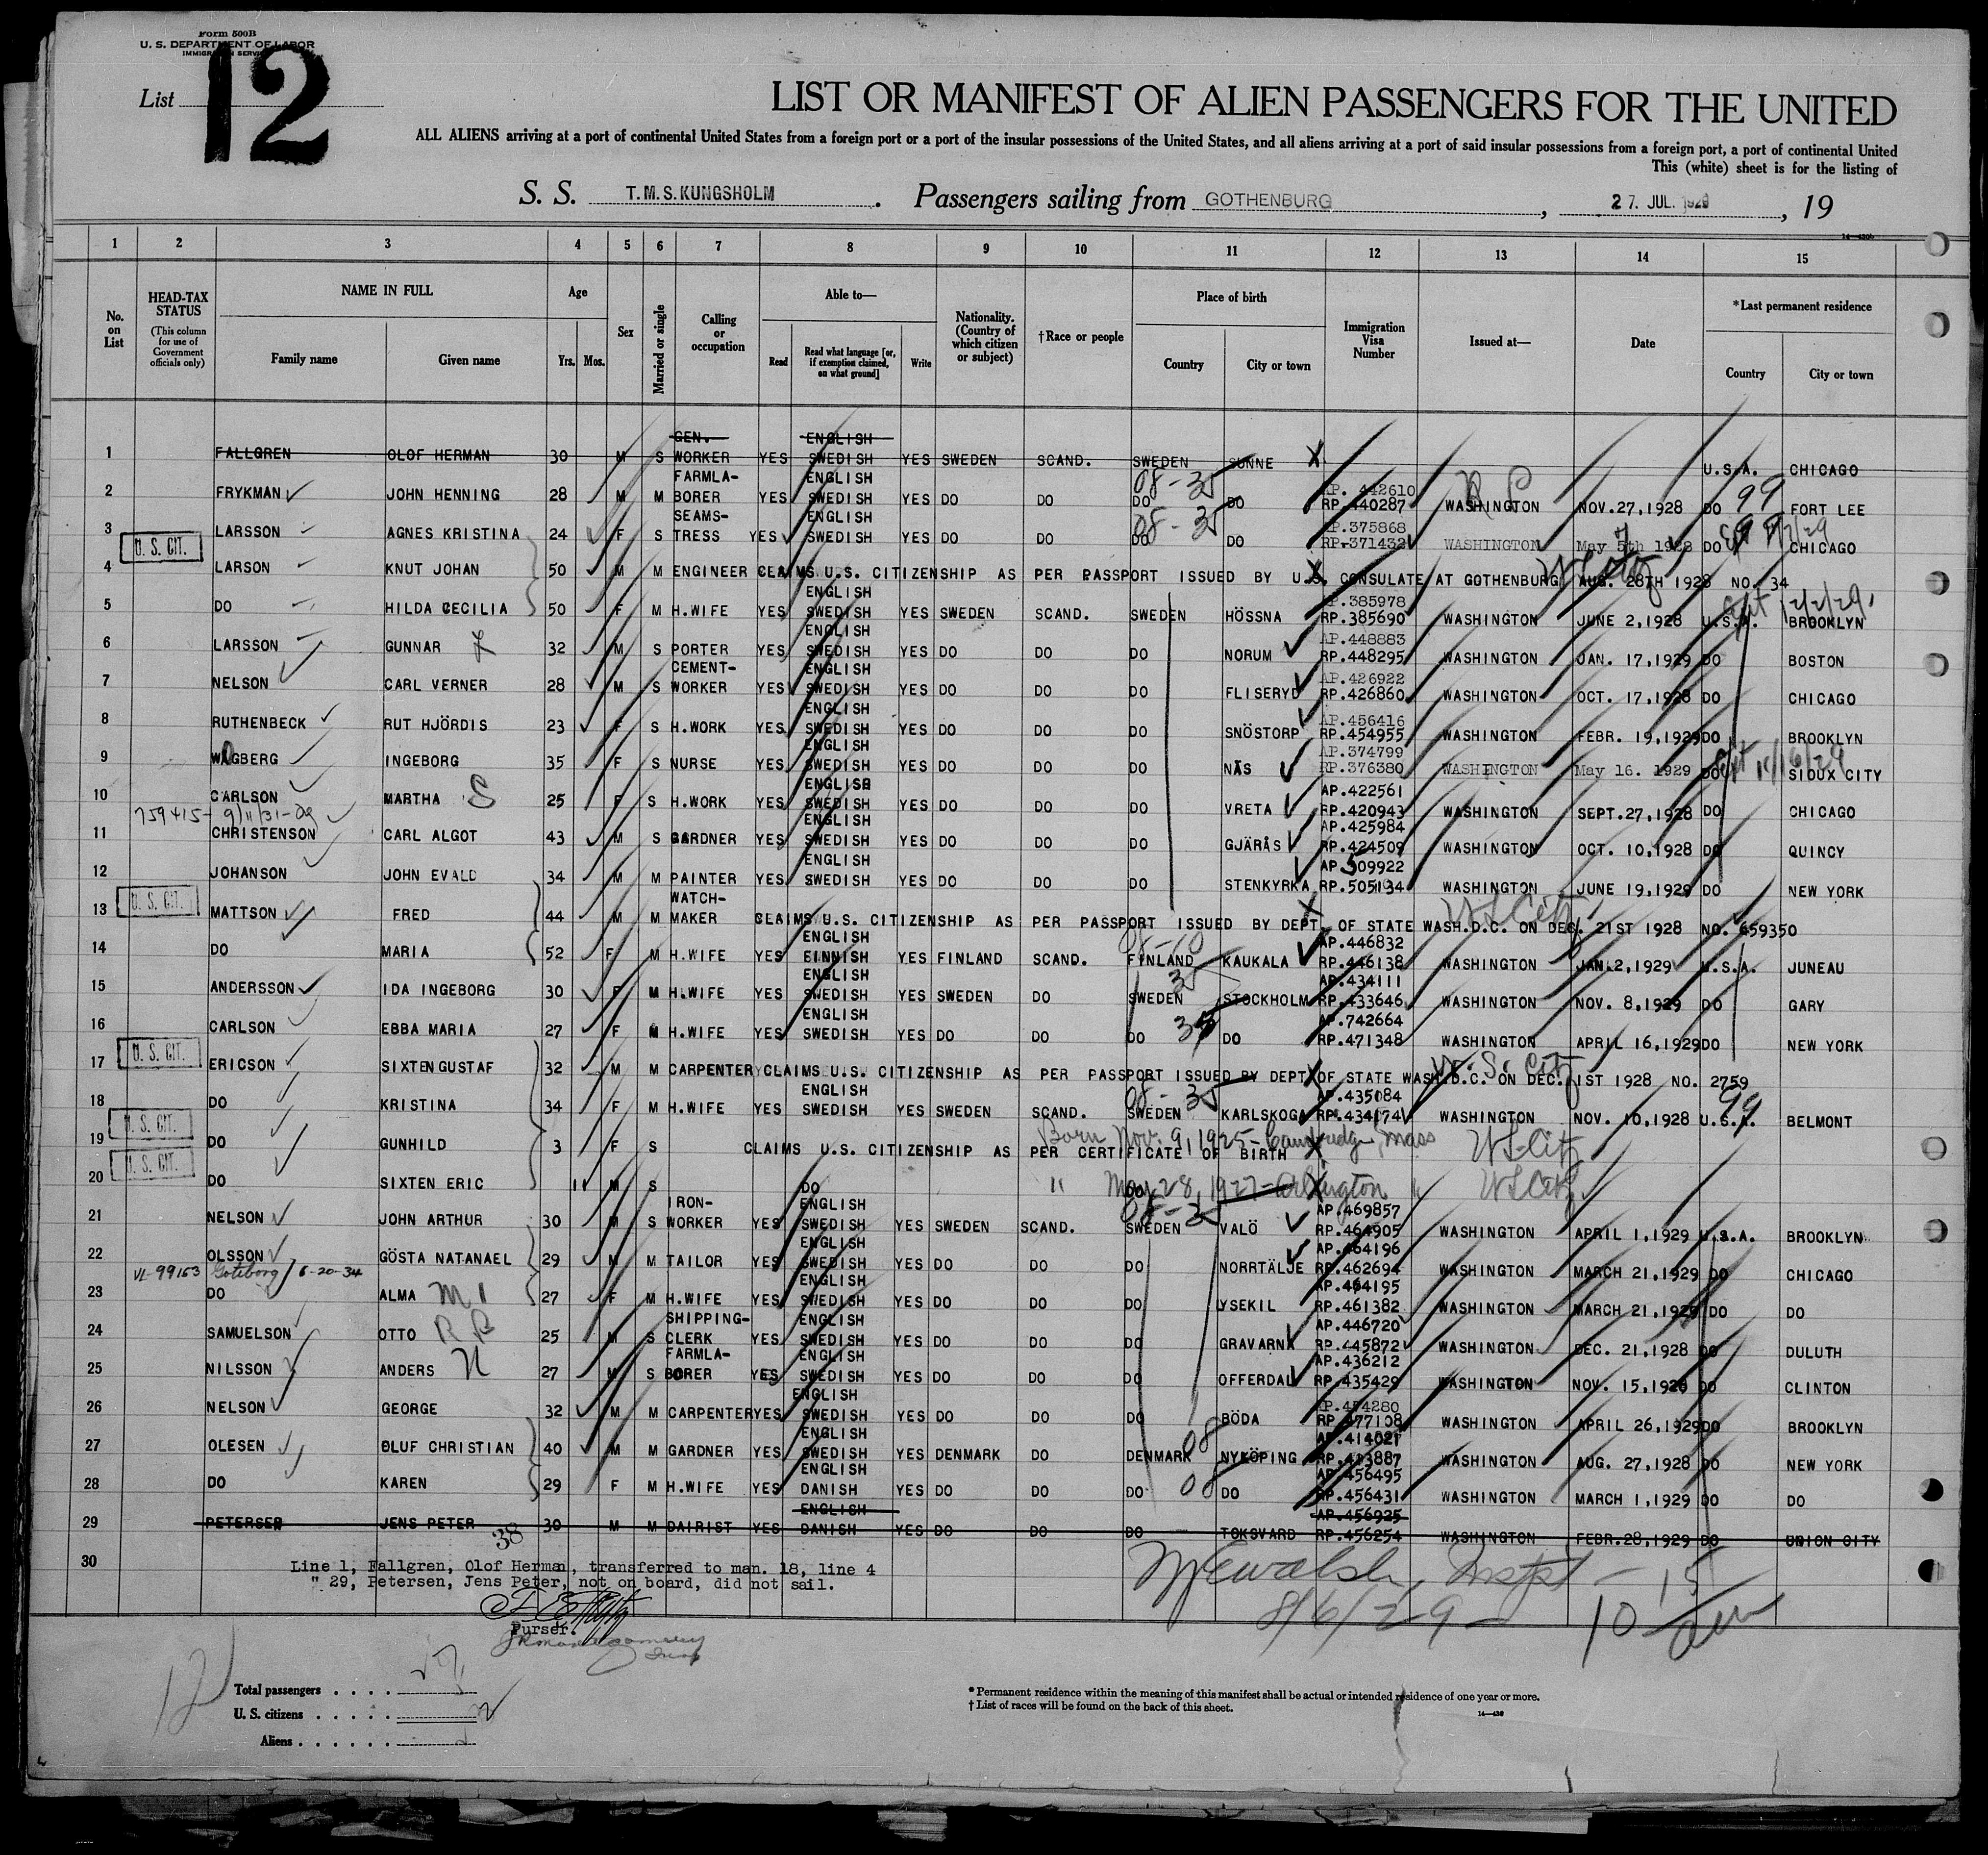 Form 500B
U. S. DEPARTMENT OF LABOR
IMMIGRATION SERVICE
List 12
LIST OR MANIFEST OF ALIEN PASSENGERS FOR THE UNITED
ALL ALIENS arriving at a port of continental United States from a foreign port or a port of the insular possessions of the United States, and all aliens arriving at a port of said insular possessions from a foreign port, a port of continental United
This (white) sheet is for the listing of
S. S. T.M.S. KUNGSHOLM. Passengers sailing from GOTHENBURG, 27. JUL. 1929, 19
1 2 3 4 5 6 7 8 9 10 11 12 13 14 15
No. on List
HEAD-TAX STATUS (This column for use of Government officials only)
NAME IN FULL Family name Given name
Age Yrs. Mos.
Sex
Married or single
Calling or occupation
Able to— Read Read what language [or, if exemption claimed, on what ground] Write
Nationality. (Country of which citizen or subject)
†Race or people
Place of birth Country City or town
Immigration Visa Number
Issued at—
Date
*Last permanent residence Country City or town
1 FALLGREN OLOF HERMAN 30 M S GEN. WORKER YES ENGLISH SWEDISH YES SWEDEN SCAND. SWEDEN SUNNE X U.S.A. CHICAGO
2 FRYKMAN JOHN HENNING 28 M M FARMLA-BORER YES ENGLISH SWEDISH YES DO DO DO 08-35 DO AP. 442610 RP.440287 WASHINGTON NOV.27,1928 DO 99 FORT LEE
3 LARSSON AGNES KRISTINA 24 F S SEAMS-TRESS YES ENGLISH SWEDISH YES DO DO DO 08-35 DO AP.375868 RP.371432 WASHINGTON May 5th 1928 DO CHICAGO
U. S. CIT.
4 LARSON KNUT JOHAN 50 M M ENGINEER CLAIMS U.S. CITIZENSHIP AS PER PASSPORT ISSUED BY U.S. CONSULATE AT GOTHENBURG AUG. 28TH 1928 NO. 34
5 DO HILDA CECILIA 50 F M H.WIFE YES ENGLISH SWEDISH YES SWEDEN SCAND. SWEDEN HÖSSNA AP.385978 RP.385690 WASHINGTON JUNE 2,1928 U.S.A. BROOKLYN
6 LARSSON GUNNAR 32 M S PORTER YES ENGLISH SWEDISH YES DO DO DO NORUM AP.448883 RP.448295 WASHINGTON JAN. 17,1929 DO BOSTON
7 NELSON CARL VERNER 28 M S CEMENT-WORKER YES ENGLISH SWEDISH YES DO DO DO FLISERYD AP.426922 RP.426860 WASHINGTON OCT. 17,1928 DO CHICAGO
8 RUTHENBECK RUT HJÖRDIS 23 F S H.WORK YES ENGLISH SWEDISH YES DO DO DO SNÖSTORP AP.456416 RP.454955 WASHINGTON FEBR. 19,1929 DO BROOKLYN
9 WAGBERG INGEBORG 35 F S NURSE YES ENGLISH SWEDISH YES DO DO DO NÄS AP.374799 RP.376380 WASHINGTON May 16. 1929 DO SIOUX CITY
10 CARLSON MARTHA S 25 F S H.WORK YES ENGLISH SWEDISH YES DO DO DO VRETA AP.422561 RP.420943 WASHINGTON SEPT.27,1928 DO CHICAGO
11 CHRISTENSON CARL ALGOT 43 M S GARDNER YES ENGLISH SWEDISH YES DO DO DO GJÄRÅS AP.425984 RP.424509 WASHINGTON OCT. 10,1928 DO QUINCY
12 JOHANSON JOHN EVALD 34 M M PAINTER YES ENGLISH SWEDISH YES DO DO DO STENKYRKA AP.509922 RP.505134 WASHINGTON JUNE 19,1929 DO NEW YORK
U. S. CIT.
13 MATTSON FRED 44 M M WATCH-MAKER CLAIMS U.S. CITIZENSHIP AS PER PASSPORT ISSUED BY DEPT. OF STATE WASH.D.C. ON DEC. 21ST 1928 NO. 659350
14 DO MARIA 52 F M H.WIFE YES ENGLISH FINNISH YES FINLAND SCAND. FINLAND KAUKALA AP.446832 RP.446138 WASHINGTON JAN.2,1929 U.S.A. JUNEAU
15 ANDERSSON IDA INGEBORG 30 F M H.WIFE YES ENGLISH SWEDISH YES SWEDEN DO SWEDEN 35 STOCKHOLM AP.434111 RP.433646 WASHINGTON NOV. 8,1929 DO GARY
16 CARLSON EBBA MARIA 27 F M H.WIFE YES ENGLISH SWEDISH YES DO DO DO 35 DO AP.742664 RP.471348 WASHINGTON APRIL 16,1929 DO NEW YORK
U. S. CIT.
17 ERICSON SIXTEN GUSTAF 32 M M CARPENTER CLAIMS U.S. CITIZENSHIP AS PER PASSPORT ISSUED BY DEPT OF STATE WASH.D.C. ON DEC. 1ST 1928 NO. 2759
18 DO KRISTINA 34 F M H.WIFE YES ENGLISH SWEDISH YES SWEDEN SCAND. SWEDEN 08-35 KARLSKOGA AP.435084 RP.434174 WASHINGTON NOV. 10,1928 U.S.A. 99 BELMONT
U. S. CIT.
19 DO GUNHILD 3 F S CLAIMS U.S. CITIZENSHIP AS PER CERTIFICATE OF BIRTH Born Nov. 9, 1925 - Cambridge, Mass
U. S. CIT.
20 DO SIXTEN ERIC 11 M S DO DO " May 28, 1927 - Arlington "
21 NELSON JOHN ARTHUR 30 M S IRON-WORKER YES ENGLISH SWEDISH YES SWEDEN SCAND. SWEDEN 08-35 VALÖ AP.469857 RP.464905 WASHINGTON APRIL 1,1929 U.S.A. BROOKLYN
22 OLSSON GÖSTA NATANAEL 29 M M TAILOR YES ENGLISH SWEDISH YES DO DO DO NORRTÄLJE AP.464196 RP.462694 WASHINGTON MARCH 21,1929 DO CHICAGO
VL-99153 Goteborg 6-20-34
23 DO ALMA 27 F M H.WIFE YES ENGLISH SWEDISH YES DO DO DO LYSEKIL AP.464195 RP.461382 WASHINGTON MARCH 21,1929 DO DO
24 SAMUELSON OTTO 25 M S SHIPPING-CLERK YES ENGLISH SWEDISH YES DO DO DO GRAVARNA AP.446720 RP.445872 WASHINGTON DEC. 21,1928 DO DULUTH
25 NILSSON ANDERS N 27 M S FARMLA-BORER YES ENGLISH SWEDISH YES DO DO DO OFFERDAL AP.436212 RP.435429 WASHINGTON NOV. 15,1928 DO CLINTON
26 NELSON GEORGE 32 M M CARPENTER YES ENGLISH SWEDISH YES DO DO DO BÖDA AP.474280 RP.477108 WASHINGTON APRIL 26,1929 DO BROOKLYN
27 OLESEN OLUF CHRISTIAN 40 M M GARDNER YES ENGLISH SWEDISH YES DENMARK DO DENMARK 08 NYKÖPING AP.414027 RP.413887 WASHINGTON AUG. 27,1928 DO NEW YORK
28 DO KAREN 29 F M H.WIFE YES ENGLISH DANISH YES DO DO DO 08 DO AP.456495 RP.456431 WASHINGTON MARCH 1,1929 DO DO
29 PETERSEN JENS PETER 30 M M DAIRIST YES ENGLISH DANISH YES DO DO DO TOKSVARD AP.456925 RP.456254 WASHINGTON FEBR.28,1929 DO UNION CITY
38
30 Line 1, Fallgren, Olof Herman, transferred to man. 18, line 4
" 29, Petersen, Jens Peter, not on board, did not sail.
Purser.
8/6/29
Total passengers
U. S. citizens
Aliens
12
* Permanent residence within the meaning of this manifest shall be actual or intended residence of one year or more.
† List of races will be found on the back of this sheet.